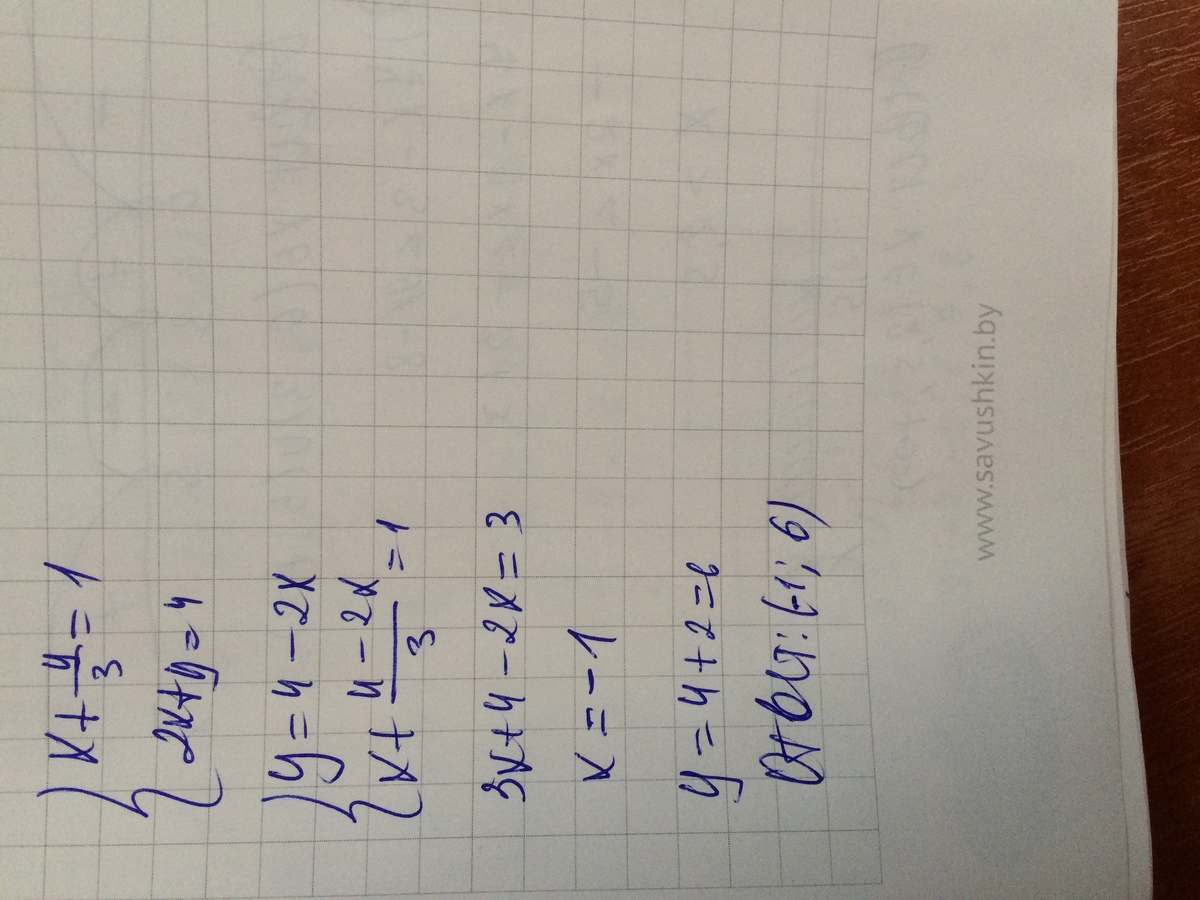 x + y/3 = 1
2x + y = 4
y = 4 - 2x
x + (4 - 2x)/3 = 1
3x + 4 - 2x = 3
x = -1
y = 4 + 2 = 6
Ответ: (-1; 6)
www.savushkin.by